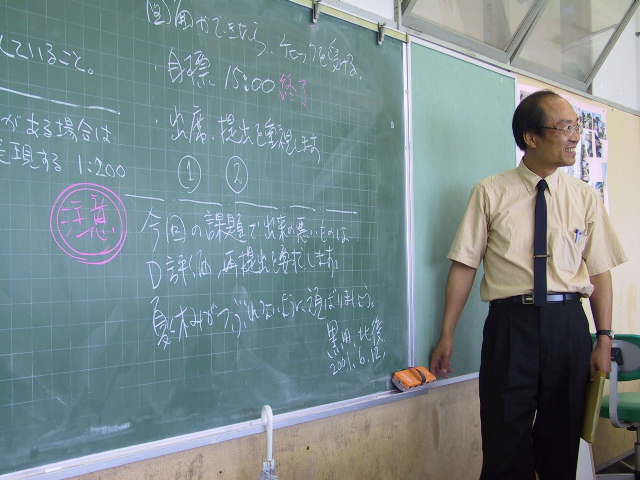 図面ができたら、チェックを受ける。
していること。
・目標 15:00 終了
がある場合は
・出席、提出を重視します
表現する 1:200
① ②
注意
今回の課題で出来の悪いものは
D評価、再提出を要求します。
夏休みがつぶれないように頑ばりましょう。
2001.6.12.